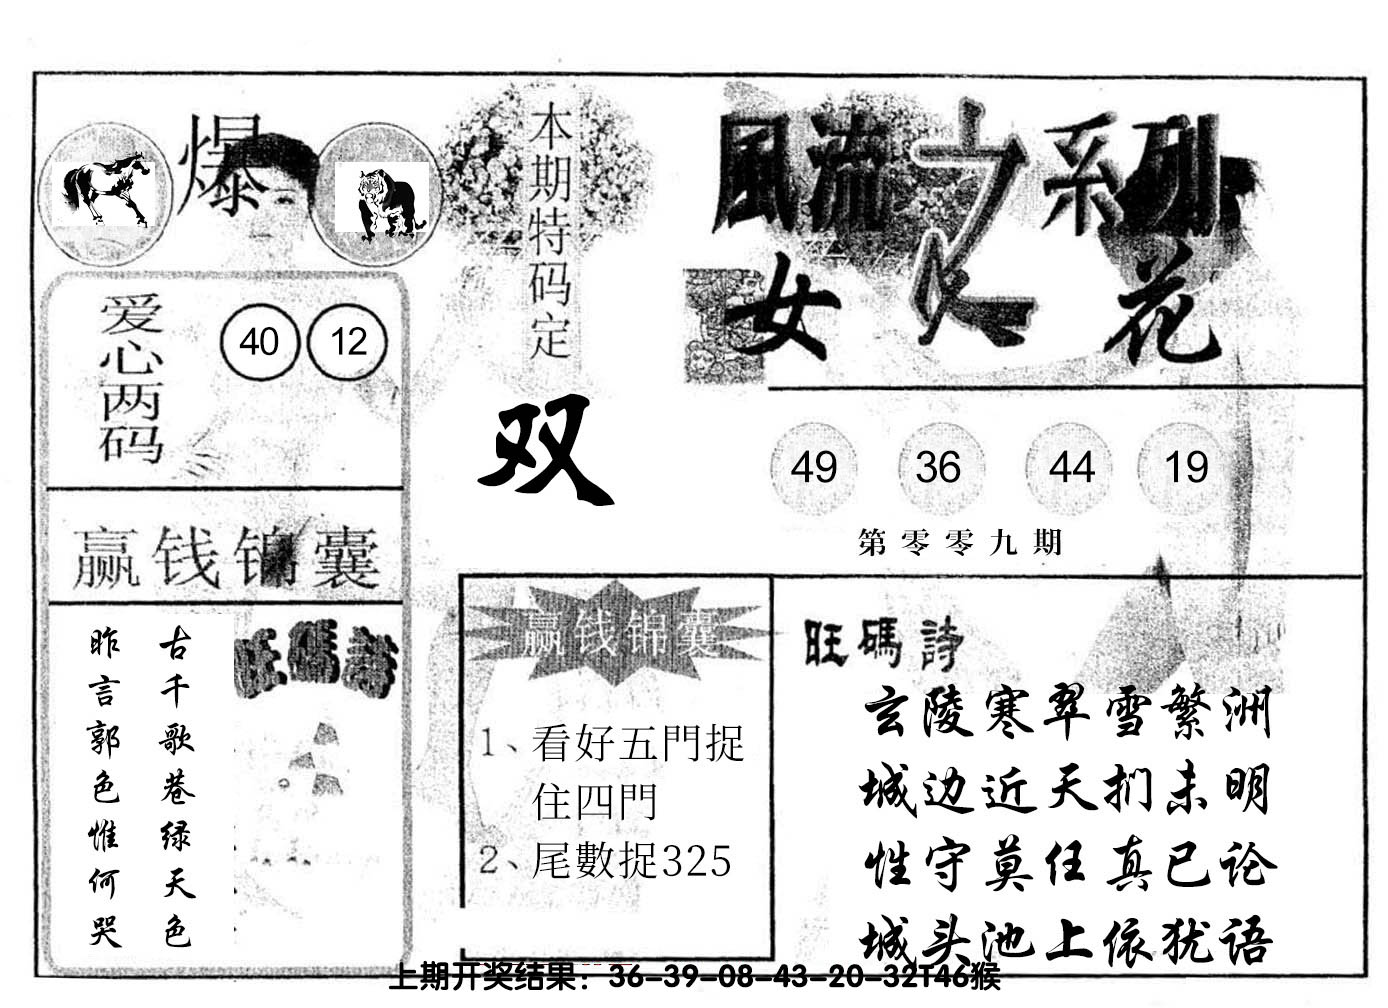 爆
本期特码定
双
風流之系列
女人花
爱心两码
40 12
49 36 44 19
第零零九期
赢钱锦囊
古千歌巷绿天色
昨言郭色惟何哭
旺碼詩
赢钱锦囊
1、看好五門捉
住四門
2、尾數捉325
旺碼詩
玄陵寒翠雪繁洲
城边近天扪未明
性守莫任真已论
城头池上依犹语
上期开奖结果：36-39-08-43-20-32T46猴